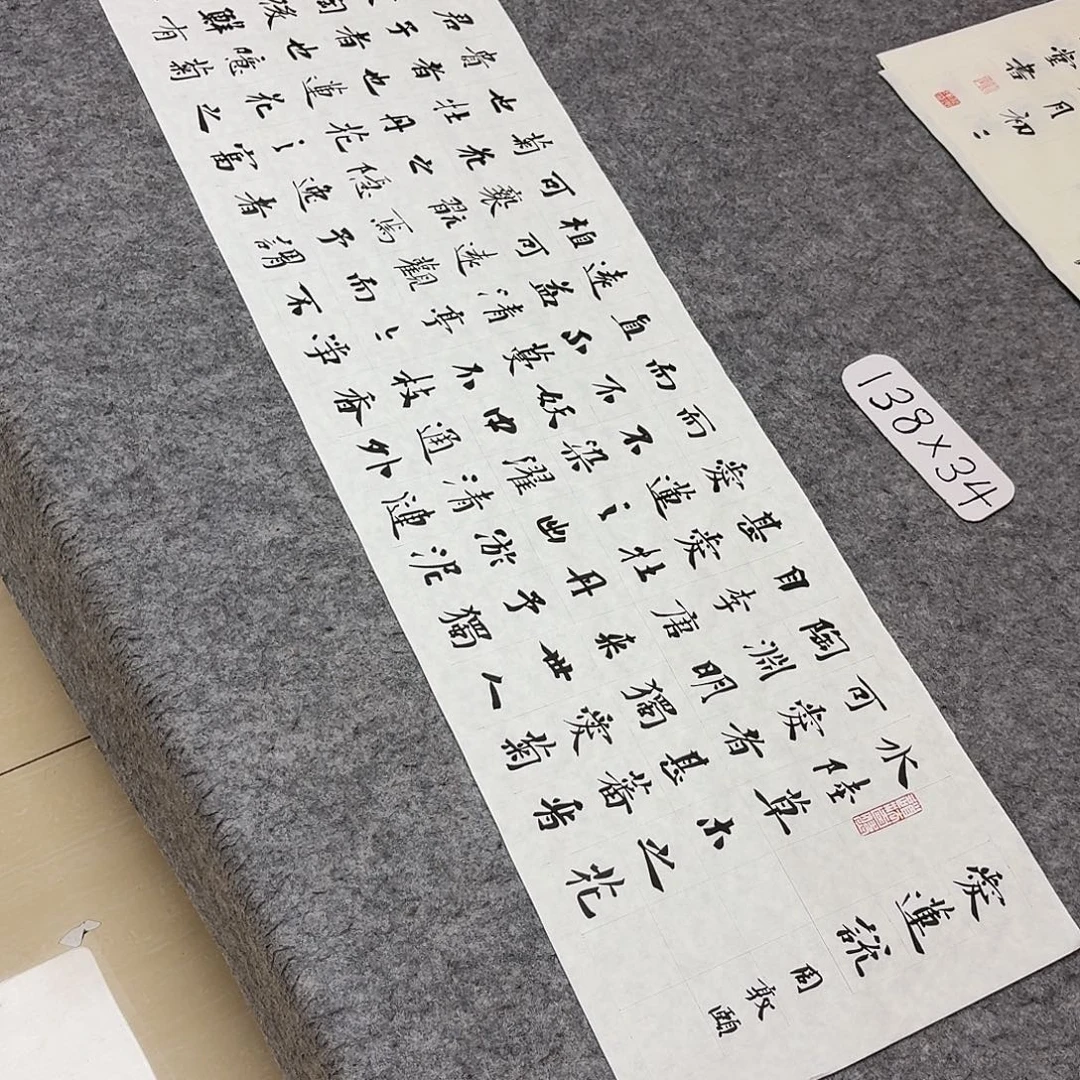 愛蓮說
周敦頤
水陸草木之花
可愛者甚蕃晉
陶淵明獨愛菊
自李唐來世人
甚愛牡丹予獨
愛蓮之出淤泥
而不染濯清漣
而不妖中通外
直不蔓不枝香
遠益清亭々淨
植可遠觀而不
可褻翫焉予謂
菊花之隱逸者
也牡丹花之富
貴者也蓮花之
君子者也噫菊
後鮮有
138×34
月初二